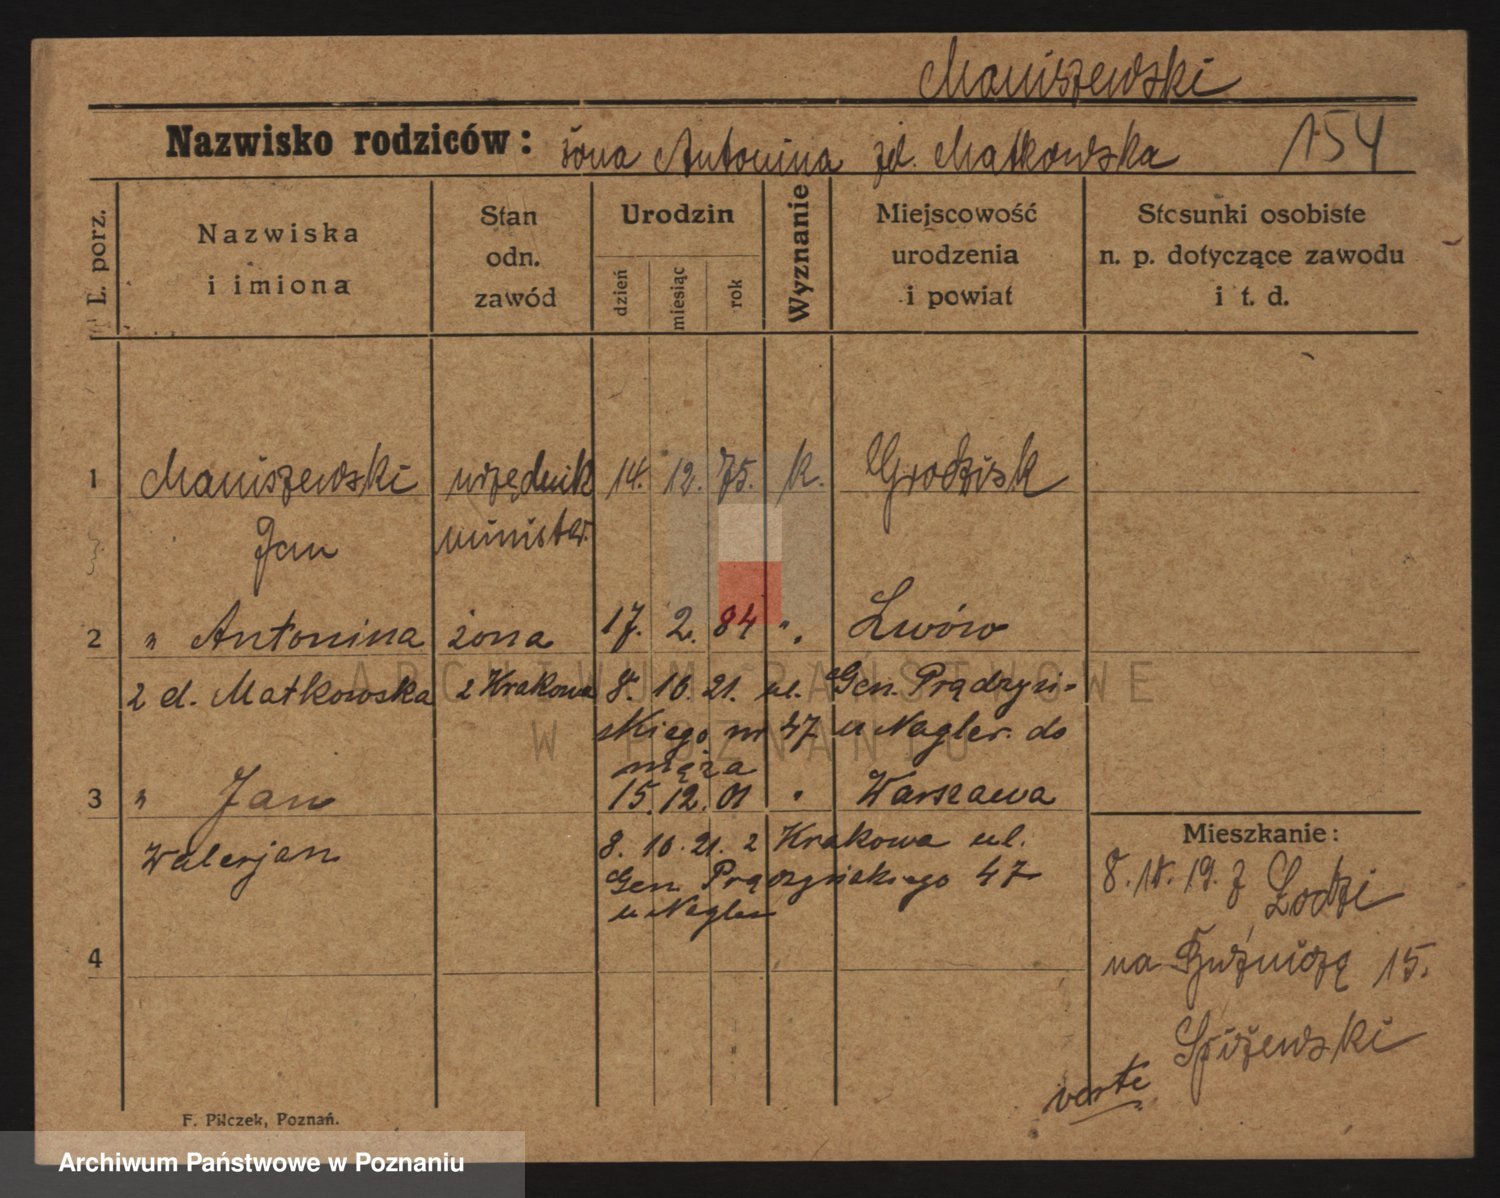 Maniszewski
Nazwisko rodziców: żona Antonina zd. Matkowska 154
L. porz.
Nazwiska
i imiona
Stan
odn.
zawód
Urodzin
dzień
miesiąc
rok
Wyznanie
Miejscowość
urodzenia
i powiat
Stosunki osobiste
n. p. dotyczące zawodu
i t. d.
1 Maniszewski urzędnik 14. 12. 75. k. Grodzisk
Jan minister.
2 " Antonina żona 17. 2. 84 ". Lwów
z d. Matkowska z Krakowa 8. 10. 21. ul. Gen. Prądzyń-
skiego nr 47 u Nagler. do
męża
3 " Jan 15. 12. 01 " Warszawa
Walerjan 8. 10. 21. z Krakowa ul.
Gen. Prądzyńskiego 47
u Nagler
4
Mieszkanie:
8. 10. 19. z Łodzi
na 15.
Spiżewski
verte
F. Pilczek, Poznań.
ARCHIWUM PAŃSTWOWE
W POZNANIU
Archiwum Państwowe w Poznaniu